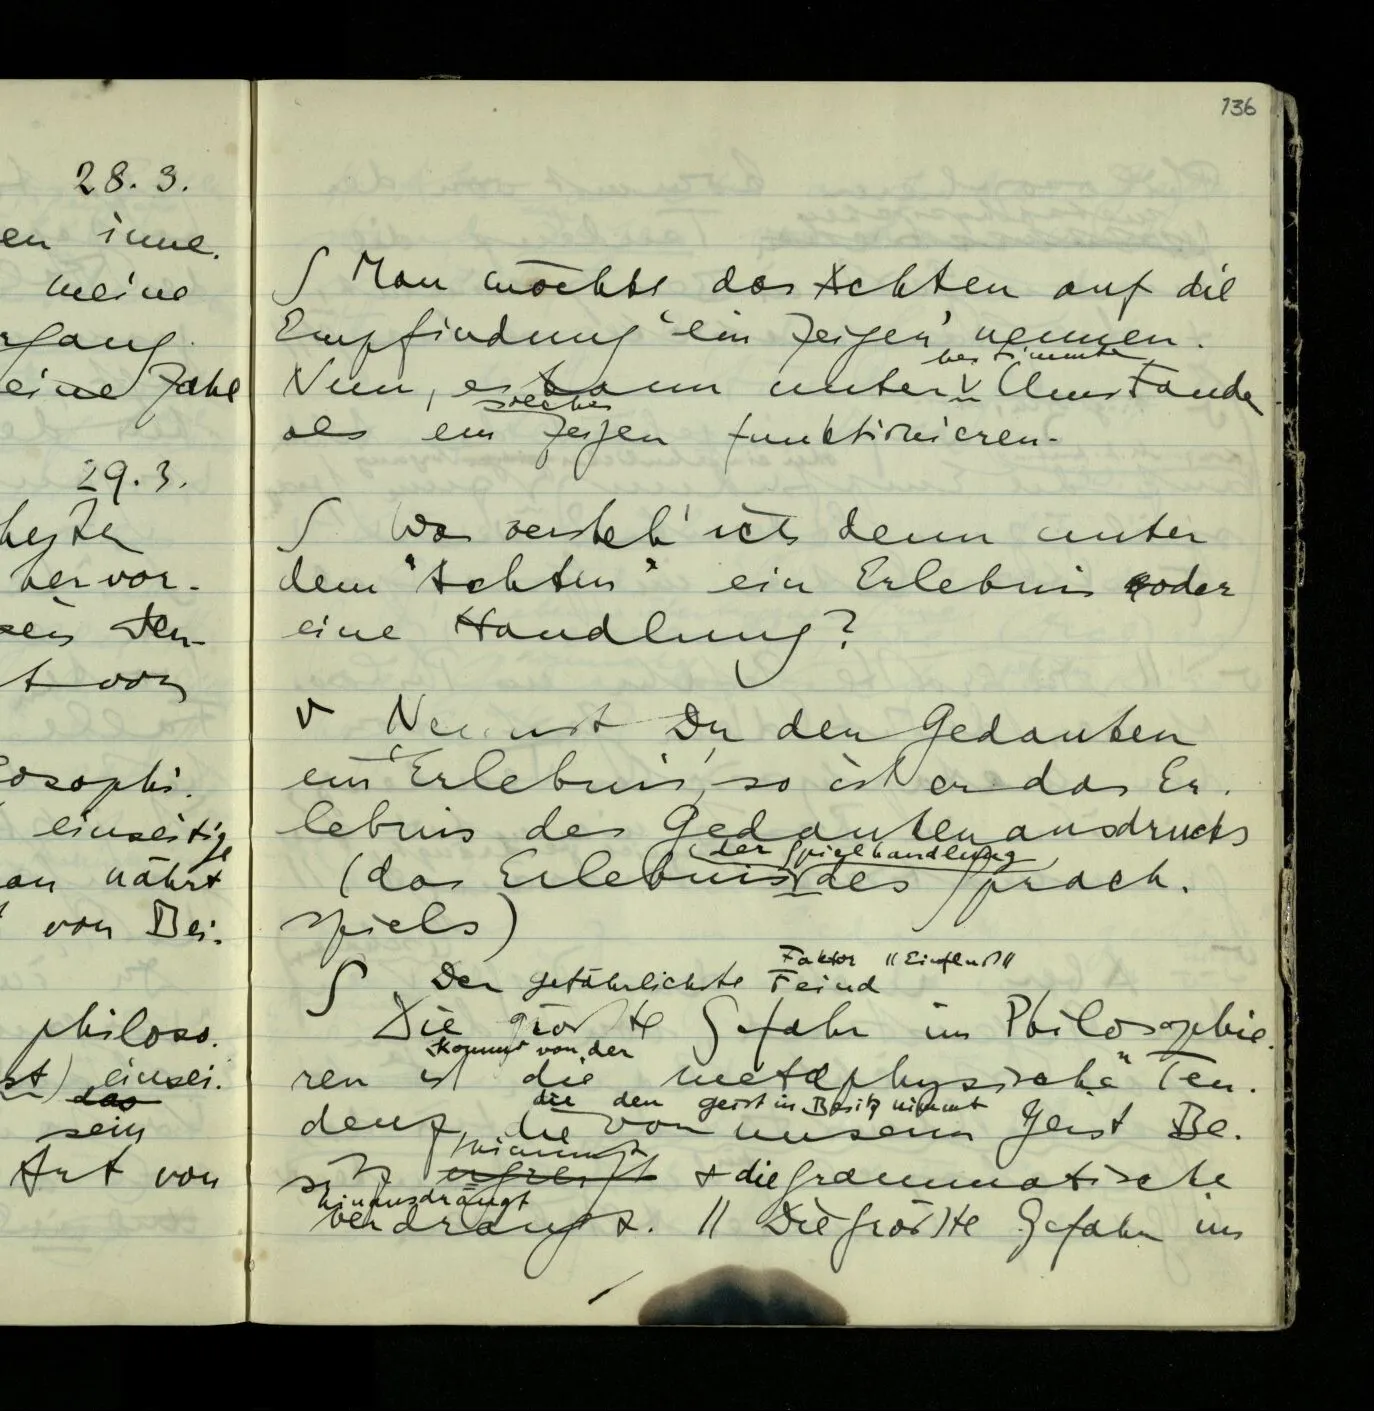 28. 3.
en inne.
meine
rgang.
eine Zahl
29. 3.
hervor-
t von
losophi-
einseitige
an nährt
von Bei-
philoso-
st) einsei-
das
sein
Art von
136
∫ Man möchte das Achten auf die
Empfindung 'ein Zeigen' nennen.
bestimmten
Nun, es kann unter ∨ Umständen
solches
als ein Zeigen funktionieren.
∫ Was versteh' ich denn unter
dem "Achten" ein Erlebnis oder
eine Handlung?
∨ Nennst Du den Gedanken
ein 'Erlebnis', so ist er das Er-
lebnis des Gedankenausdrucks
der Spielhandlung
(das Erlebnis ∨ des Sprach-
spiels)
Faktor // Einfluß //
∫ Der gefährlichste Feind
Die größte Gefahr im Philosophie-
kommt von der
ren ist die metaphysische Ten-
die den Geist in Besitz nimmt
denz, die von unserm Geist Be-
nimmt
sitz ergreift & die grammatische
hinausdrängt
verdrängt. // Die größte Gefahr im